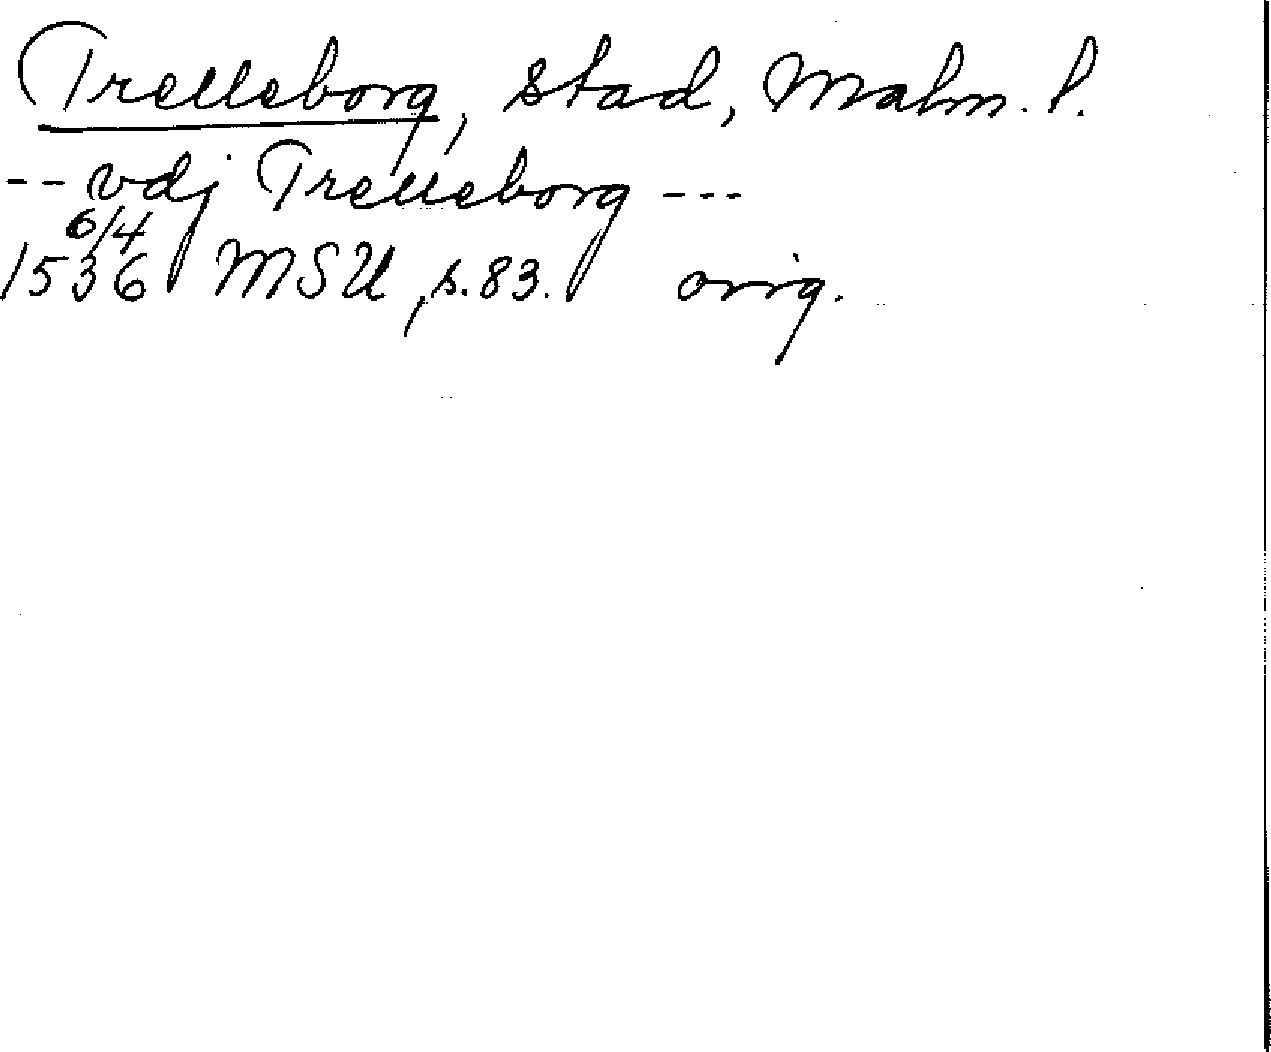 Trelleborg, stad, Malm. l.
-- vdj Trelleborg ---
6/4
1536 MSU, s. 83. orig.